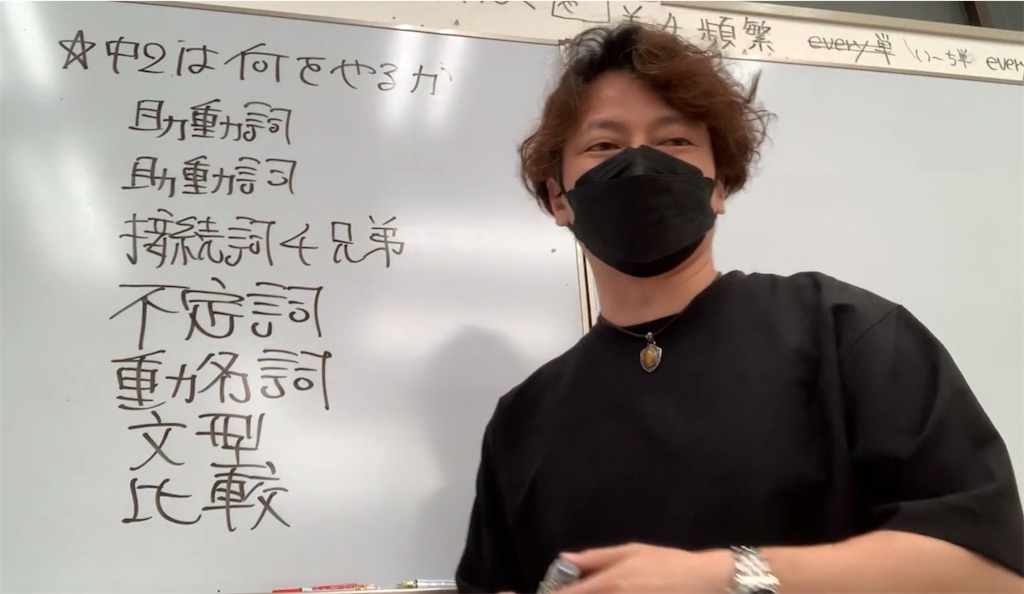 頻繁 every単 いーち単 every
☆中2は何をやるか
助動詞
助動詞
接続詞4兄弟
不定詞
動名詞
文型
比較